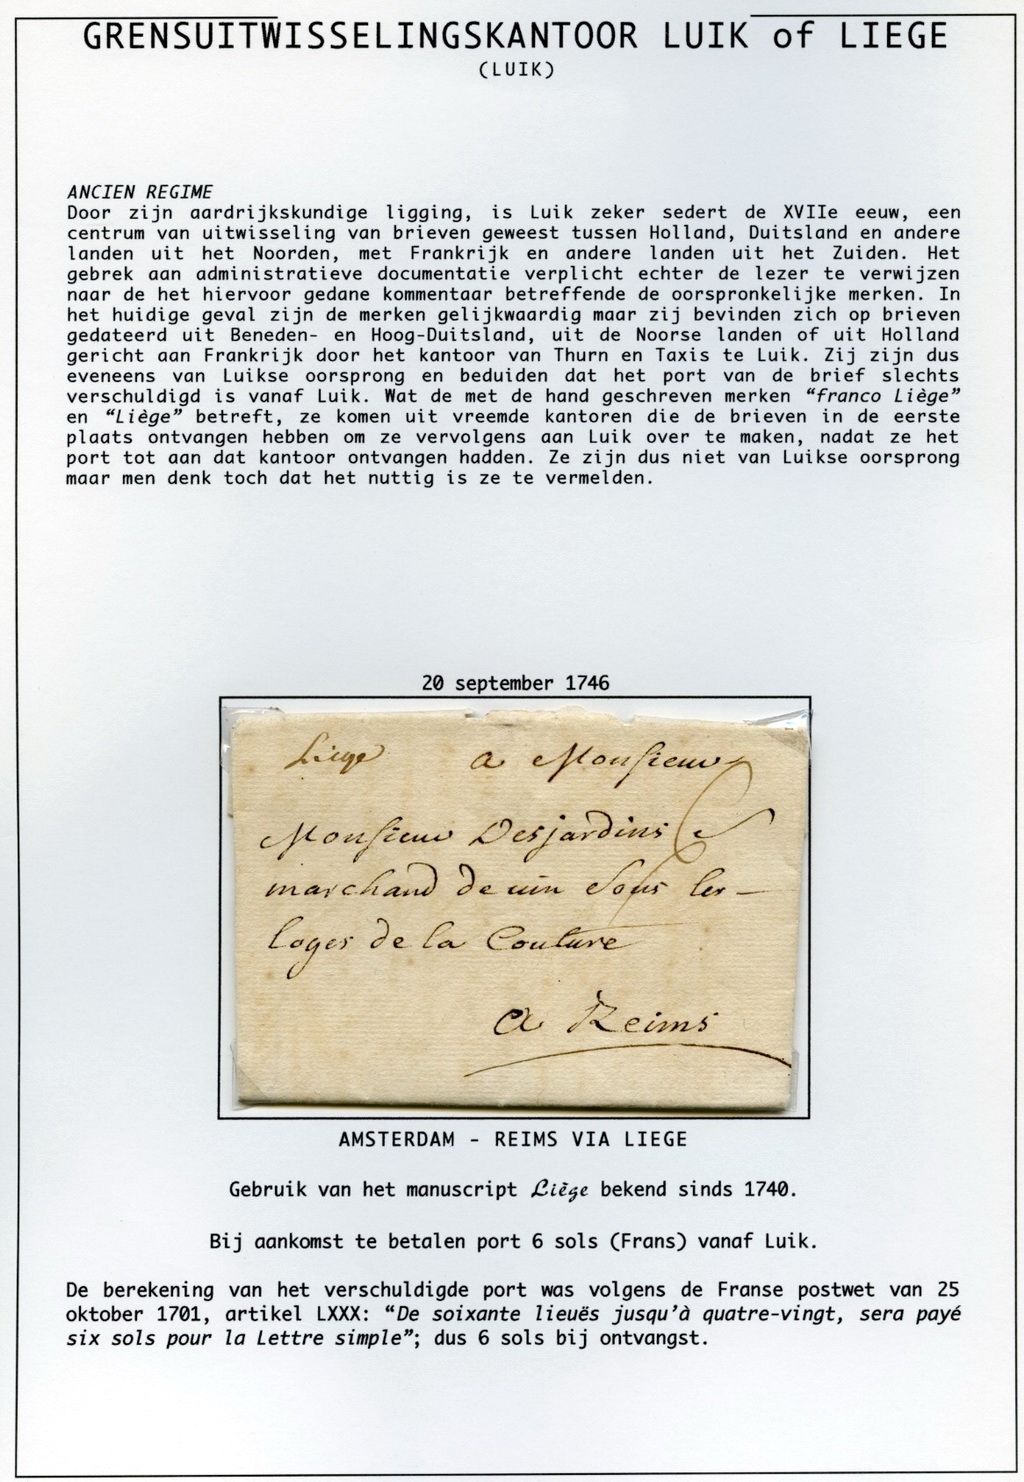 GRENSUITWISSELINGSKANTOOR LUIK of LIEGE
(LUIK)
ANCIEN REGIME
Door zijn aardrijkskundige ligging, is Luik zeker sedert de XVIIe eeuw, een
centrum van uitwisseling van brieven geweest tussen Holland, Duitsland en andere
landen uit het Noorden, met Frankrijk en andere landen uit het Zuiden. Het
gebrek aan administratieve documentatie verplicht echter de lezer te verwijzen
naar de het hiervoor gedane kommentaar betreffende de oorspronkelijke merken. In
het huidige geval zijn de merken gelijkwaardig maar zij bevinden zich op brieven
gedateerd uit Beneden- en Hoog-Duitsland, uit de Noorse landen of uit Holland
gericht aan Frankrijk door het kantoor van Thurn en Taxis te Luik. Zij zijn dus
eveneens van Luikse oorsprong en beduiden dat het port van de brief slechts
verschuldigd is vanaf Luik. Wat de met de hand geschreven merken “franco Liège”
en “Liège” betreft, ze komen uit vreemde kantoren die de brieven in de eerste
plaats ontvangen hebben om ze vervolgens aan Luik over te maken, nadat ze het
port tot aan dat kantoor ontvangen hadden. Ze zijn dus niet van Luikse oorsprong
maar men denk toch dat het nuttig is ze te vermelden.
20 september 1746
Liege a Monsieur
Monsieur Desjardins 6 s
marchand de vin sous les
loges de la Couture
a Reims
AMSTERDAM - REIMS VIA LIEGE
Gebruik van het manuscript Liège bekend sinds 1740.
Bij aankomst te betalen port 6 sols (Frans) vanaf Luik.
De berekening van het verschuldigde port was volgens de Franse postwet van 25
oktober 1701, artikel LXXX: “De soixante lieuës jusqu’à quatre-vingt, sera payé
six sols pour la Lettre simple”; dus 6 sols bij ontvangst.